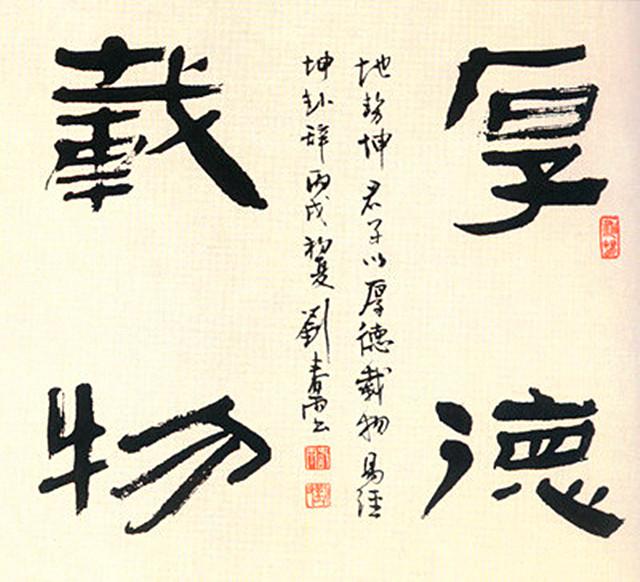 厚德
載物
地勢坤君子以厚德載物易經
坤卦辞丙戌初夏劉春雨書